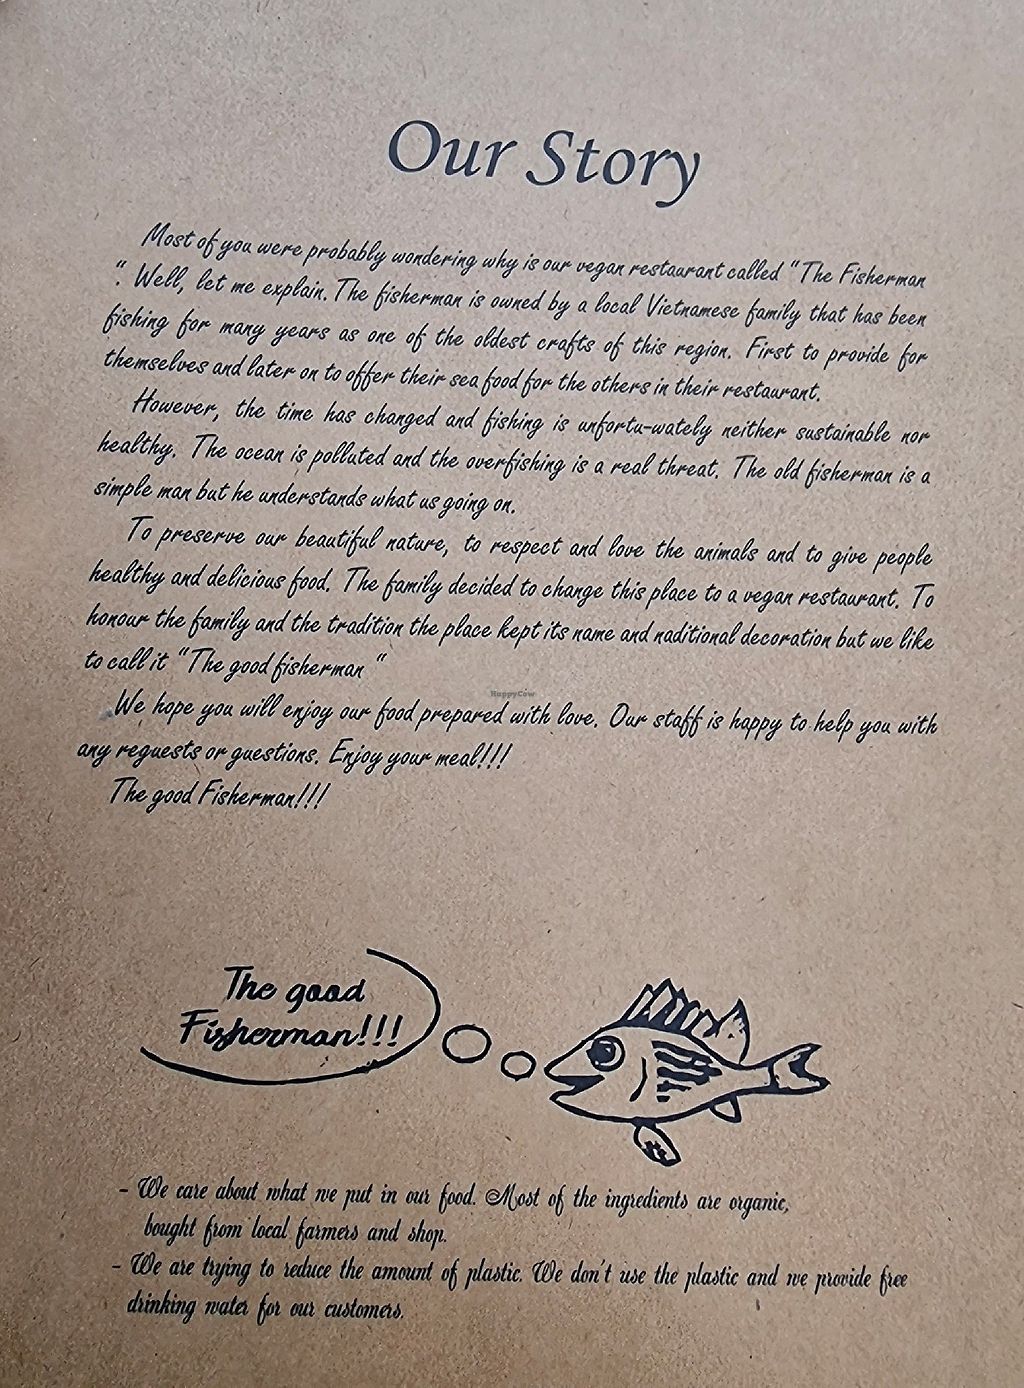 Our Story
Most of you were probably wondering why is our vegan restaurant called "The Fisherman
". Well, let me explain. The fisherman is owned by a local Vietnamese family that has been
fishing for many years as one of the oldest crafts of this region. First to provide for
themselves and later on to offer their sea food for the others in their restaurant.
However, the time has changed and fishing is unfortu-wately neither sustainable nor
healthy. The ocean is polluted and the overfishing is a real threat. The old fisherman is a
simple man but he understands what us going on.
To preserve our beautiful nature, to respect and love the animals and to give people
healthy and delicious food. The family decided to change this place to a vegan restaurant. To
honour the family and the tradition the place kept its name and naditional decoration but we like
to call it "The good fisherman "
HappyCow
We hope you will enjoy our food prepared with love. Our staff is happy to help you with
any reguests or guestions. Enjoy your meal!!!
The good Fisherman!!!
The good
Fisherman!!!
- We care about what we put in our food. Most of the ingredients are organic,
bought from local farmers and shop.
- We are trying to reduce the amount of plastic. We don't use the plastic and we provide free
drinking water for our customers.